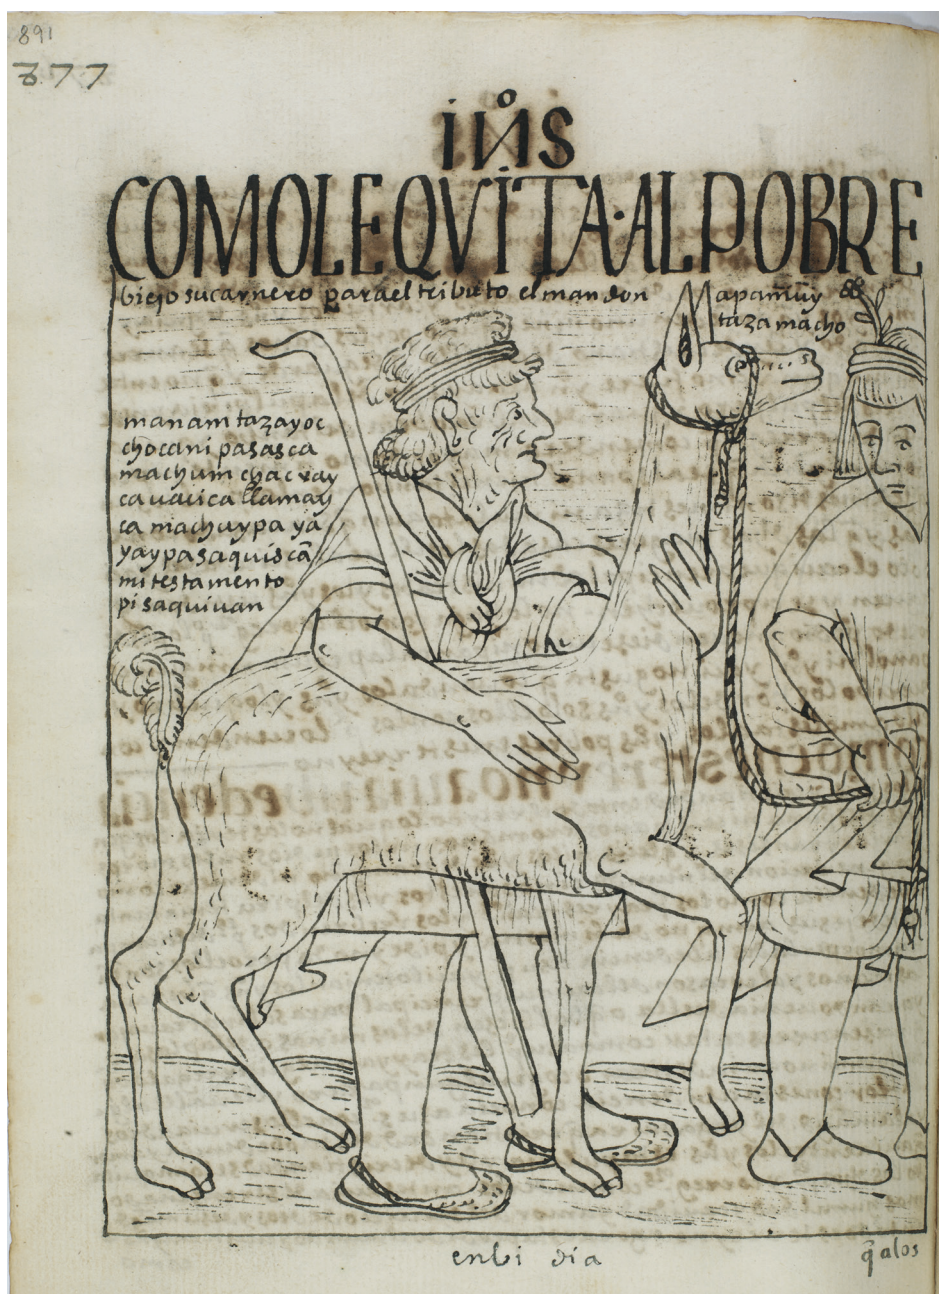 891
877
i͞n̊s
COMOLEQVITA·ALPOBRE
biejo sucarnero paraeltributo elmandon
apamuy
tazamacho
manam tazayoc
chocani pasasca
machum chacray
ca uacica llamay
ca machuypa ya
yaypasaquiscã
mi testamento
pi saquiuan
enbi dia
q̃ alos